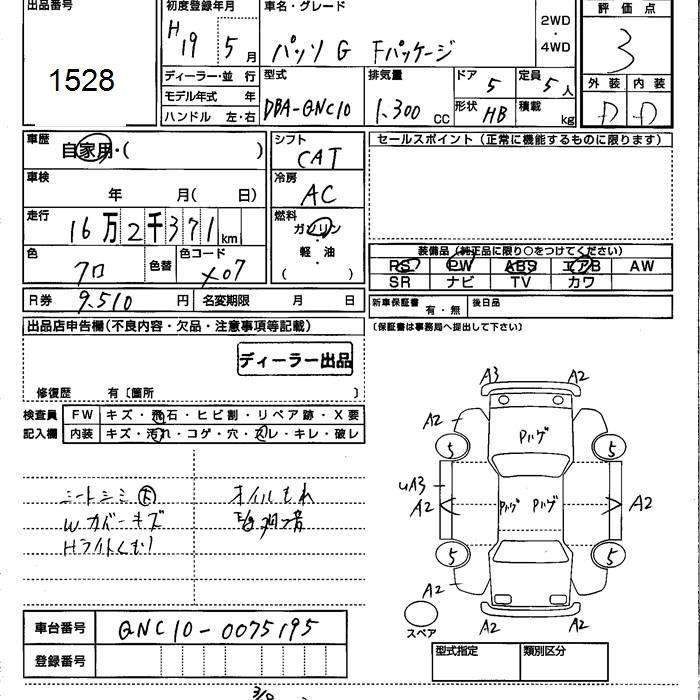 出品番号 初度登録年月 車名・グレード 評価点
1528 H 19 5月 パッソ G Fパッケージ 2WD・4WD 3
ディーラー・並行 型式 排気量 ドア 5 定員 5人 外装 内装
モデル年式 年 DBA-QNC10 1.300 CC 形状 HB 積載 kg D D
ハンドル 左・右
車歴 自家用・( ) シフト CAT セールスポイント(正常に機能するものに限ります)
車検 年 月( 日) 冷房 AC
走行 16万2千371km 燃料 ガソリン
軽・油
( )
色 クロ 色替 色コード X07 装備品(純正品に限り○をつけてください)
PS PW ABS エアB AW
SR ナビ TV カワ
R券 9.510 円 名変期限 月 日 新車保証書 有・無 後日品
出品店申告欄(不良内容・欠品・注意事項等記載) (保証書は事務局へ提出して下さい)
ディーラー出品
修復歴 有〔箇所 〕
検査員 FW キズ・飛石・ヒビ割・リペア跡・X要
記入欄 内装 キズ・汚れ・コゲ・穴・スレ・キレ・破レ
A3 A2
A2 A2
Pハゲ
5 5
UA3
A2 Pハゲ Pハゲ A2
シートシミ大 オイルもれ
Wカバーキズ
Hライトくもり
5 5
A2 A2
A2 A2
スペア
車台番号 QNC10-0075195
登録番号
型式指定 類別区分